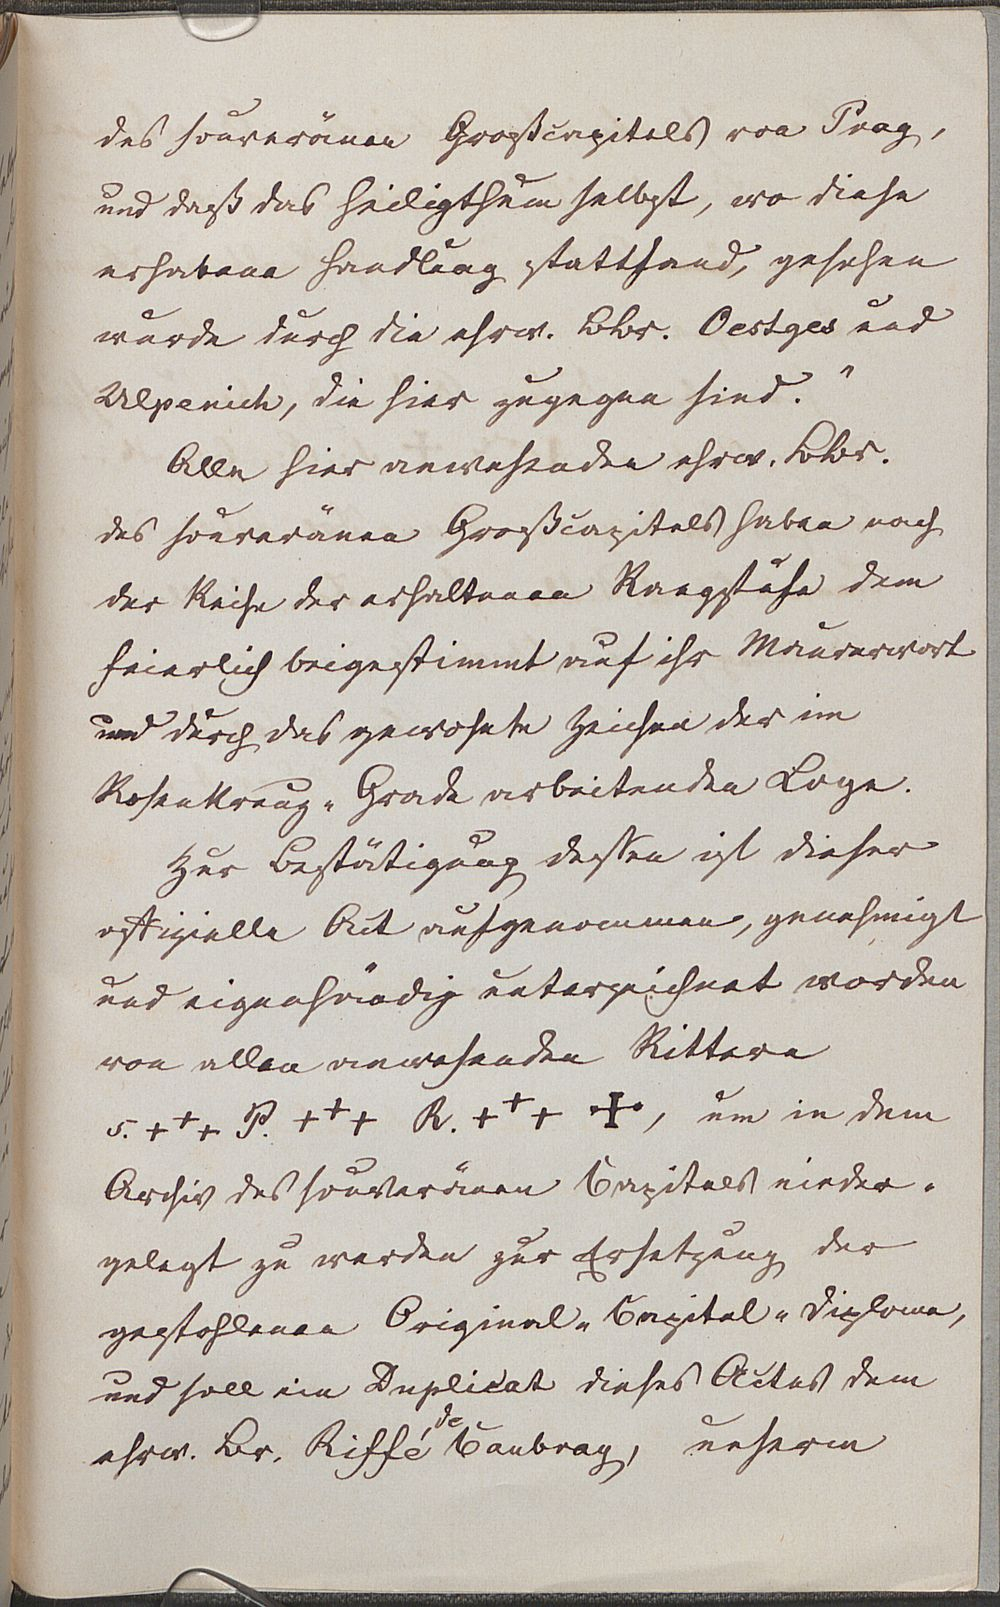 des souveränen Großcapitels von Prag,
und daß das Heiligthum selbst, wo diese
erhabene Handlung stattfand, gesehen
wurde durch die ehrw. BBr. Oestges und
Ulpenich, die hier zugegen sind."
Alle hier anwesenden ehrw. BBr.
des souveränen Großcapitels haben nach
der Reihe der erhaltenen Rangstufe dem
feierlich beigestimmt auf ihr Maurerwort
und durch das gewohnte Zeichen der im
Rosenkreuz-Grade arbeitenden Loge.
Zur Bestätigung dessen ist dieser
offizielle Act aufgenommen, genehmigt
und eigenhändig unterzeichnet worden
von allen anwesenden Rittern
S. +++ P. +++ R. +++ ·✠·, um in dem
Archiv des souveränen Capitels nieder-
gelegt zu werden zur Ersetzung der
gestohlenen Original-Capitel-Diplome,
und soll ein Duplicat dieses Actes dem
ehrw. Br. Riffé de Caubray, unserm